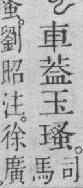 車蓋玉瑵。
司
馬
蚤。劉昭注。徐廣